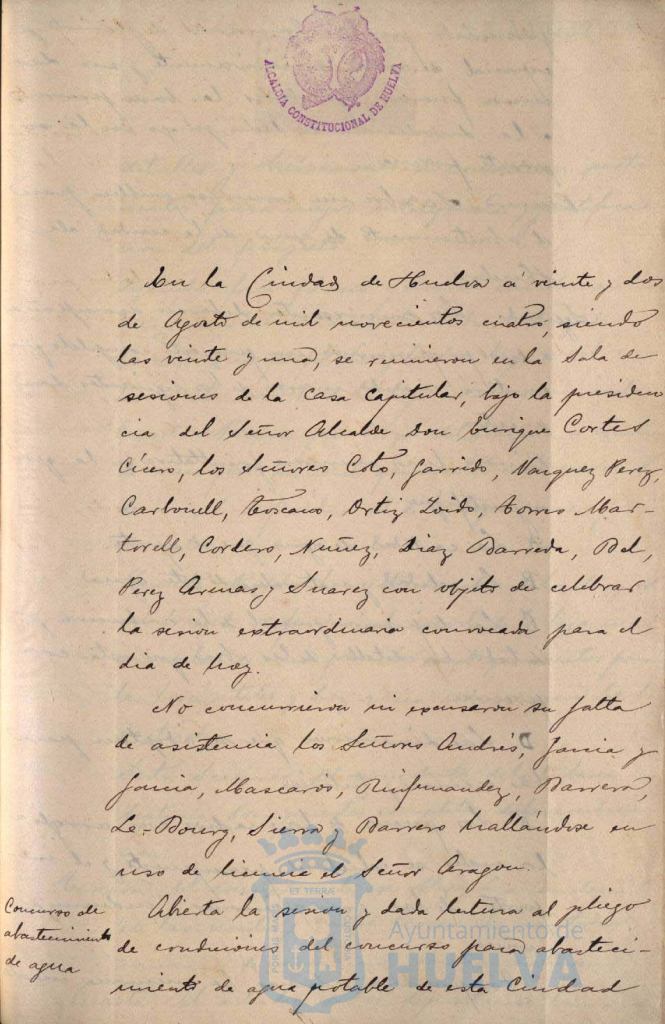 ALCALDIA CONSTITUCIONAL DE HUELVA
En la Ciudad de Huelva á veinte y dos
de Agosto de mil novecientos cuatro, siendo
las veinte y una, se reunieron en la Sala de
sesiones de la casa capitular, bajo la presiden
cia del Señor Alcalde Don Enrique Cortes
Cícero, los Señores Coto, Garrido, Vazquez Perez,
Carbonell, Toscano, Ortiz Zoido, Torres Mar-
torell, Cordero, Nuñez, Diaz Barreda, Bel,
Perez Arenas y Suarez con objeto de celebrar
la sesion extraordinaria convocada para el
dia de hoy.
No concurrieron ni excusaron su falta
de asistencia los Señores Andrés, Garcia y
Garcia, Mascarós, Rinfernandez, Barrera,
Le-Bourg, Sierra y Barrero hallándose en
uso de licencia el Señor Aragon.
Concurso de
abastecimiento
de agua
Abierta la sesion y dada lectura al pliego
de condiciones del concurso para abasteci-
miento de agua potable de esta Ciudad
ET TERRAE
Ayuntamiento de
HUELVA